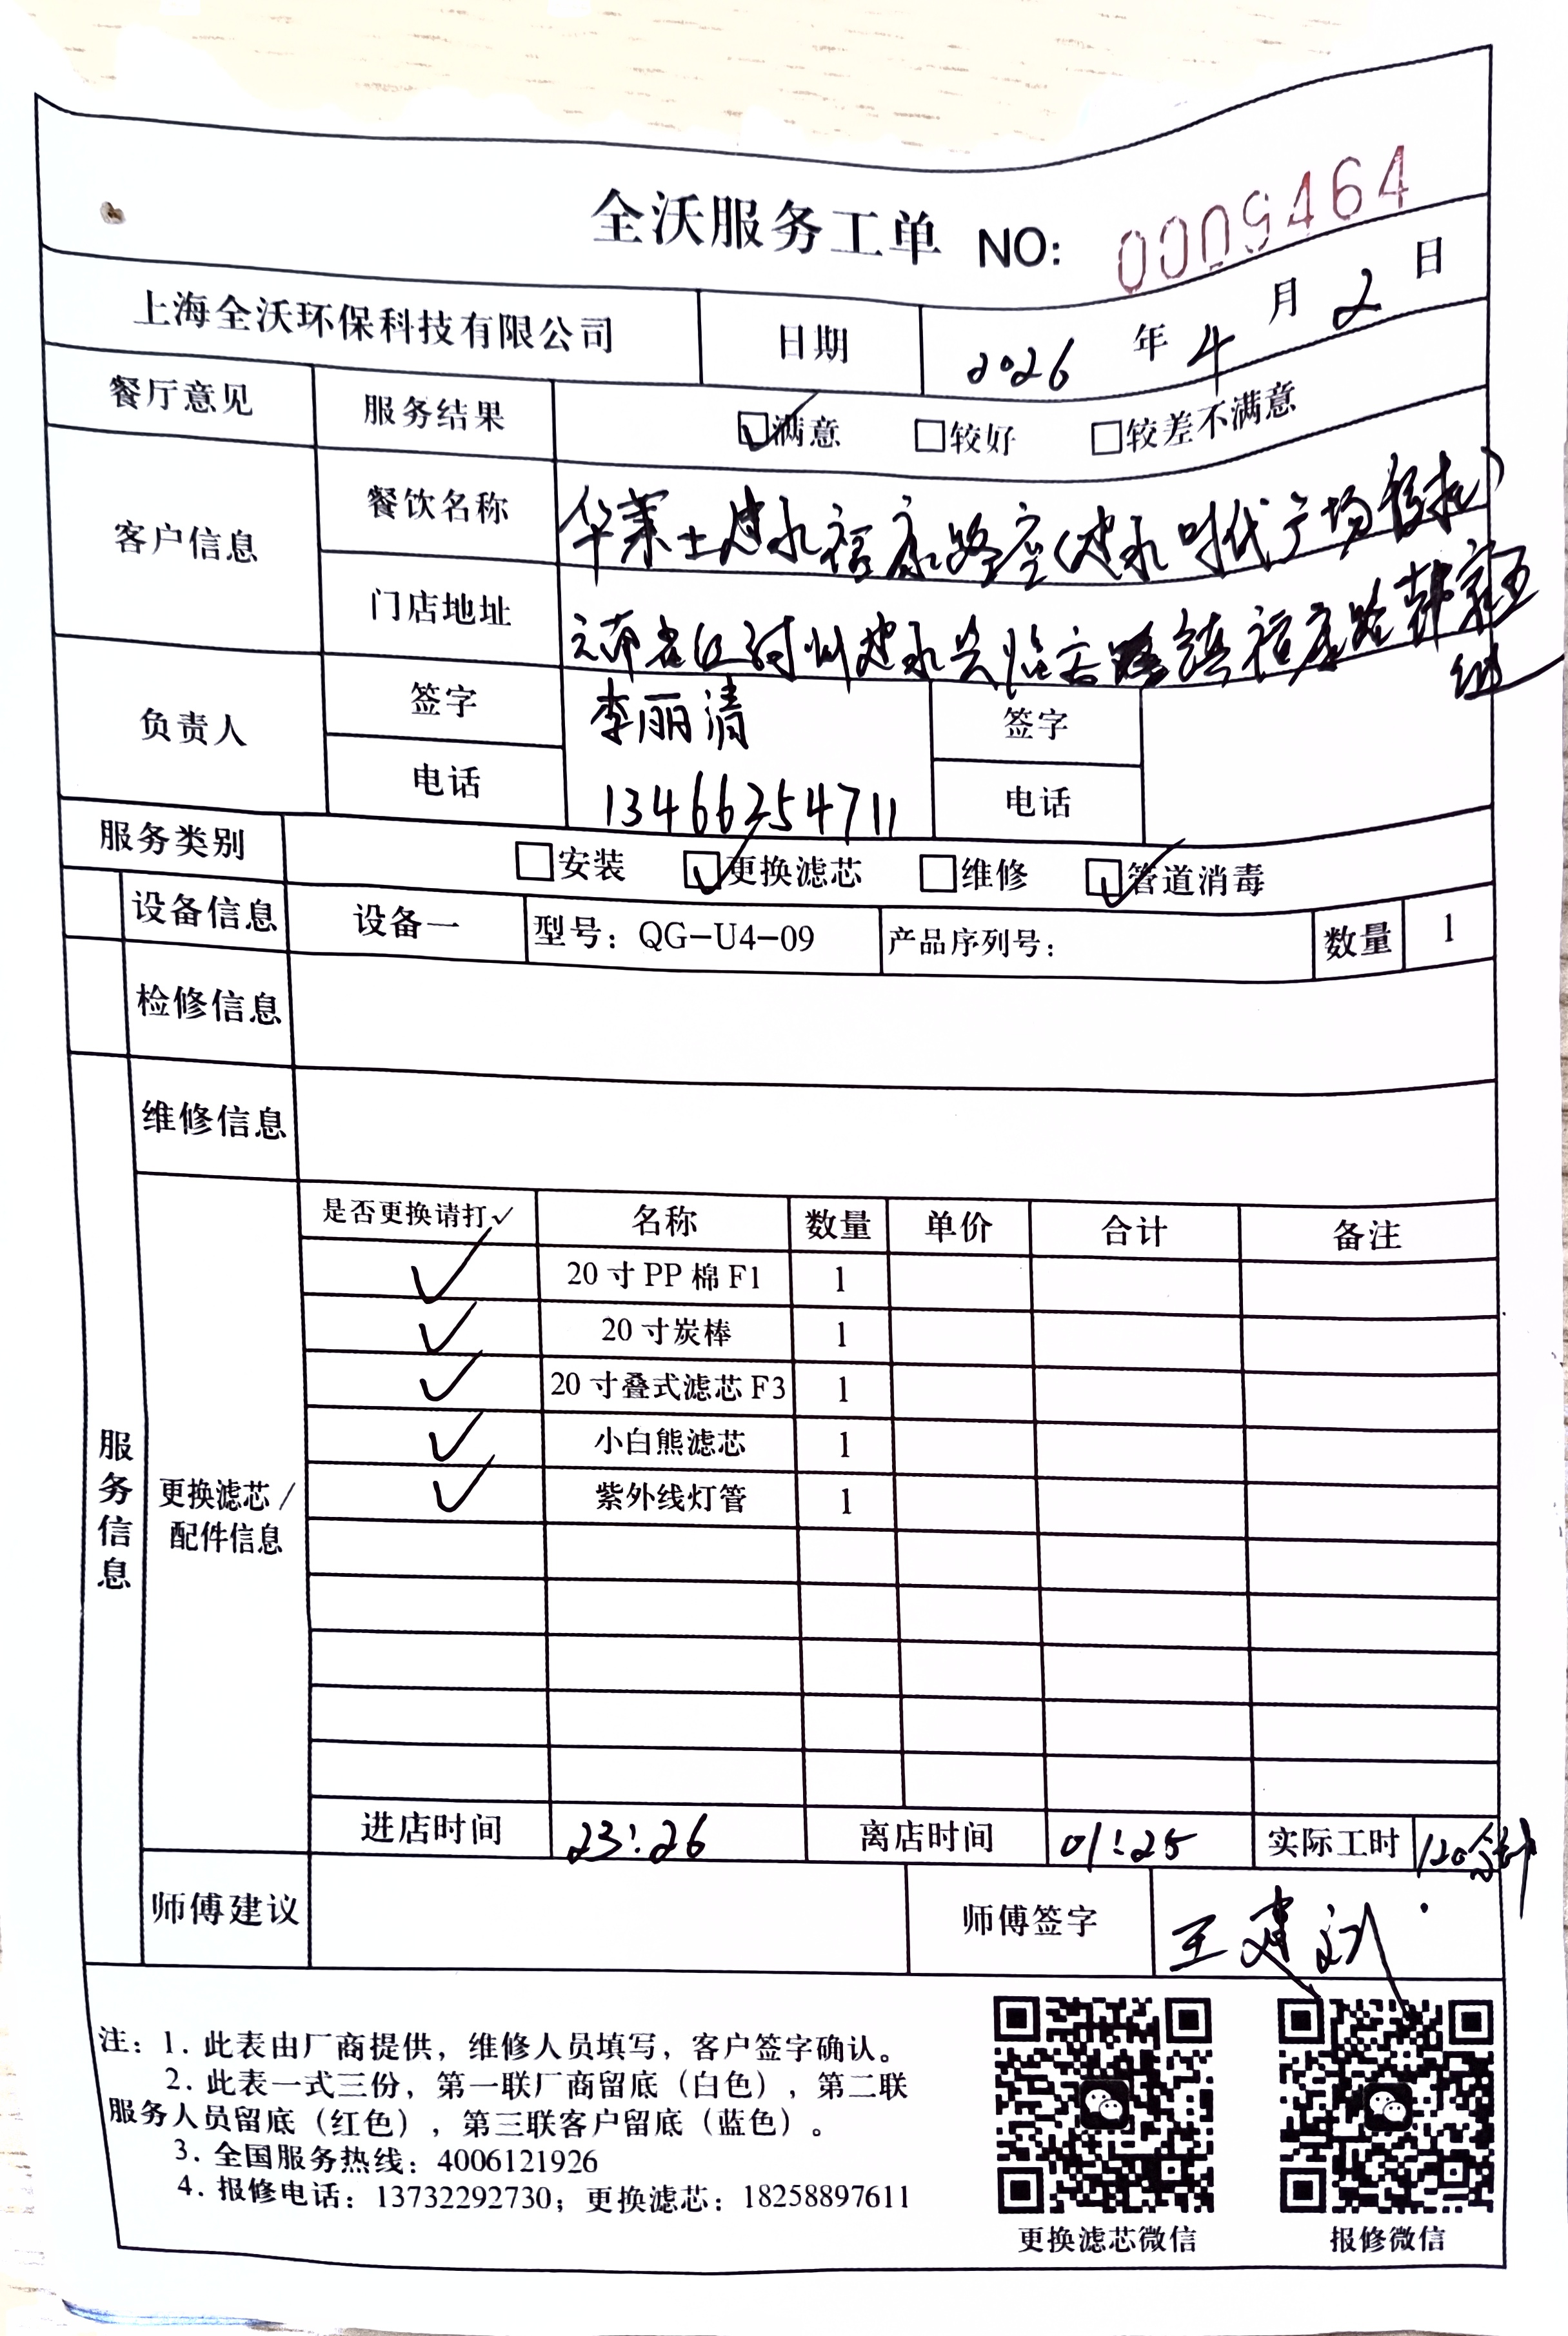 全沃服务工单 NO: 0009464
上海全沃环保科技有限公司 日期 2026 年 4 月 2 日
餐厅意见 服务结果 满意 较好 较差不满意
客户信息 餐饮名称 华莱士建水福康路店(建水时代广场)
门店地址 云南省红河州建水县临安镇福康路
负责人 签字 李丽清 签字
电话 13466254711 电话
服务类别 安装 更换滤芯 维修 管道消毒
设备信息 设备一 型号：QG-U4-09 产品序列号： 数量 1
检修信息
维修信息
服务信息
更换滤芯/
配件信息
是否更换请打✓ 名称 数量 单价 合计 备注
✓ 20寸PP棉F1 1
✓ 20寸炭棒 1
✓ 20寸叠式滤芯F3 1
✓ 小白熊滤芯 1
✓ 紫外线灯管 1
进店时间 23:26 离店时间 01:25 实际工时 120分钟
师傅建议 师傅签字 王建
注：1. 此表由厂商提供，维修人员填写，客户签字确认。
2. 此表一式三份，第一联厂商留底（白色），第二联
服务人员留底（红色），第三联客户留底（蓝色）。
3. 全国服务热线：4006121926
4. 报修电话：13732292730；更换滤芯：18258897611
更换滤芯微信 报修微信